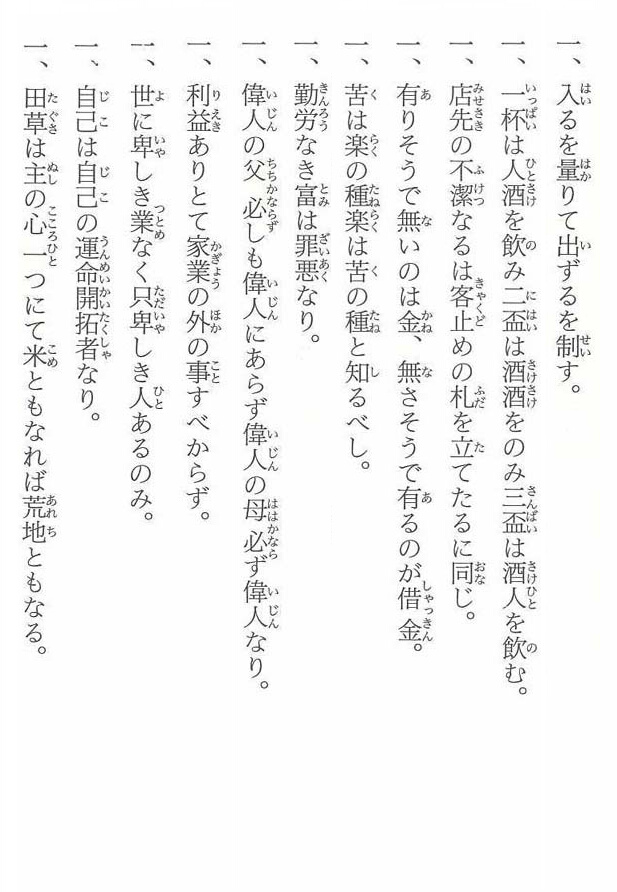 一、入るを量りて出ずるを制す。
一、一杯は人酒を飲み二盃は酒酒をのみ三盃は酒人を飲む。
一、店先の不潔なるは客止めの札を立てたるに同じ。
一、有りそうで無いのは金、無さそうで有るのが借金。
一、苦は楽の種楽は苦の種と知るべし。
一、勤労なき富は罪悪なり。
一、偉人の父必しも偉人にあらず偉人の母必ず偉人なり。
一、利益ありとて家業の外の事すべからず。
一、世に卑しき業なく只卑しき人あるのみ。
一、自己は自己の運命開拓者なり。
一、田草は主の心一つにて米ともなれば荒地ともなる。